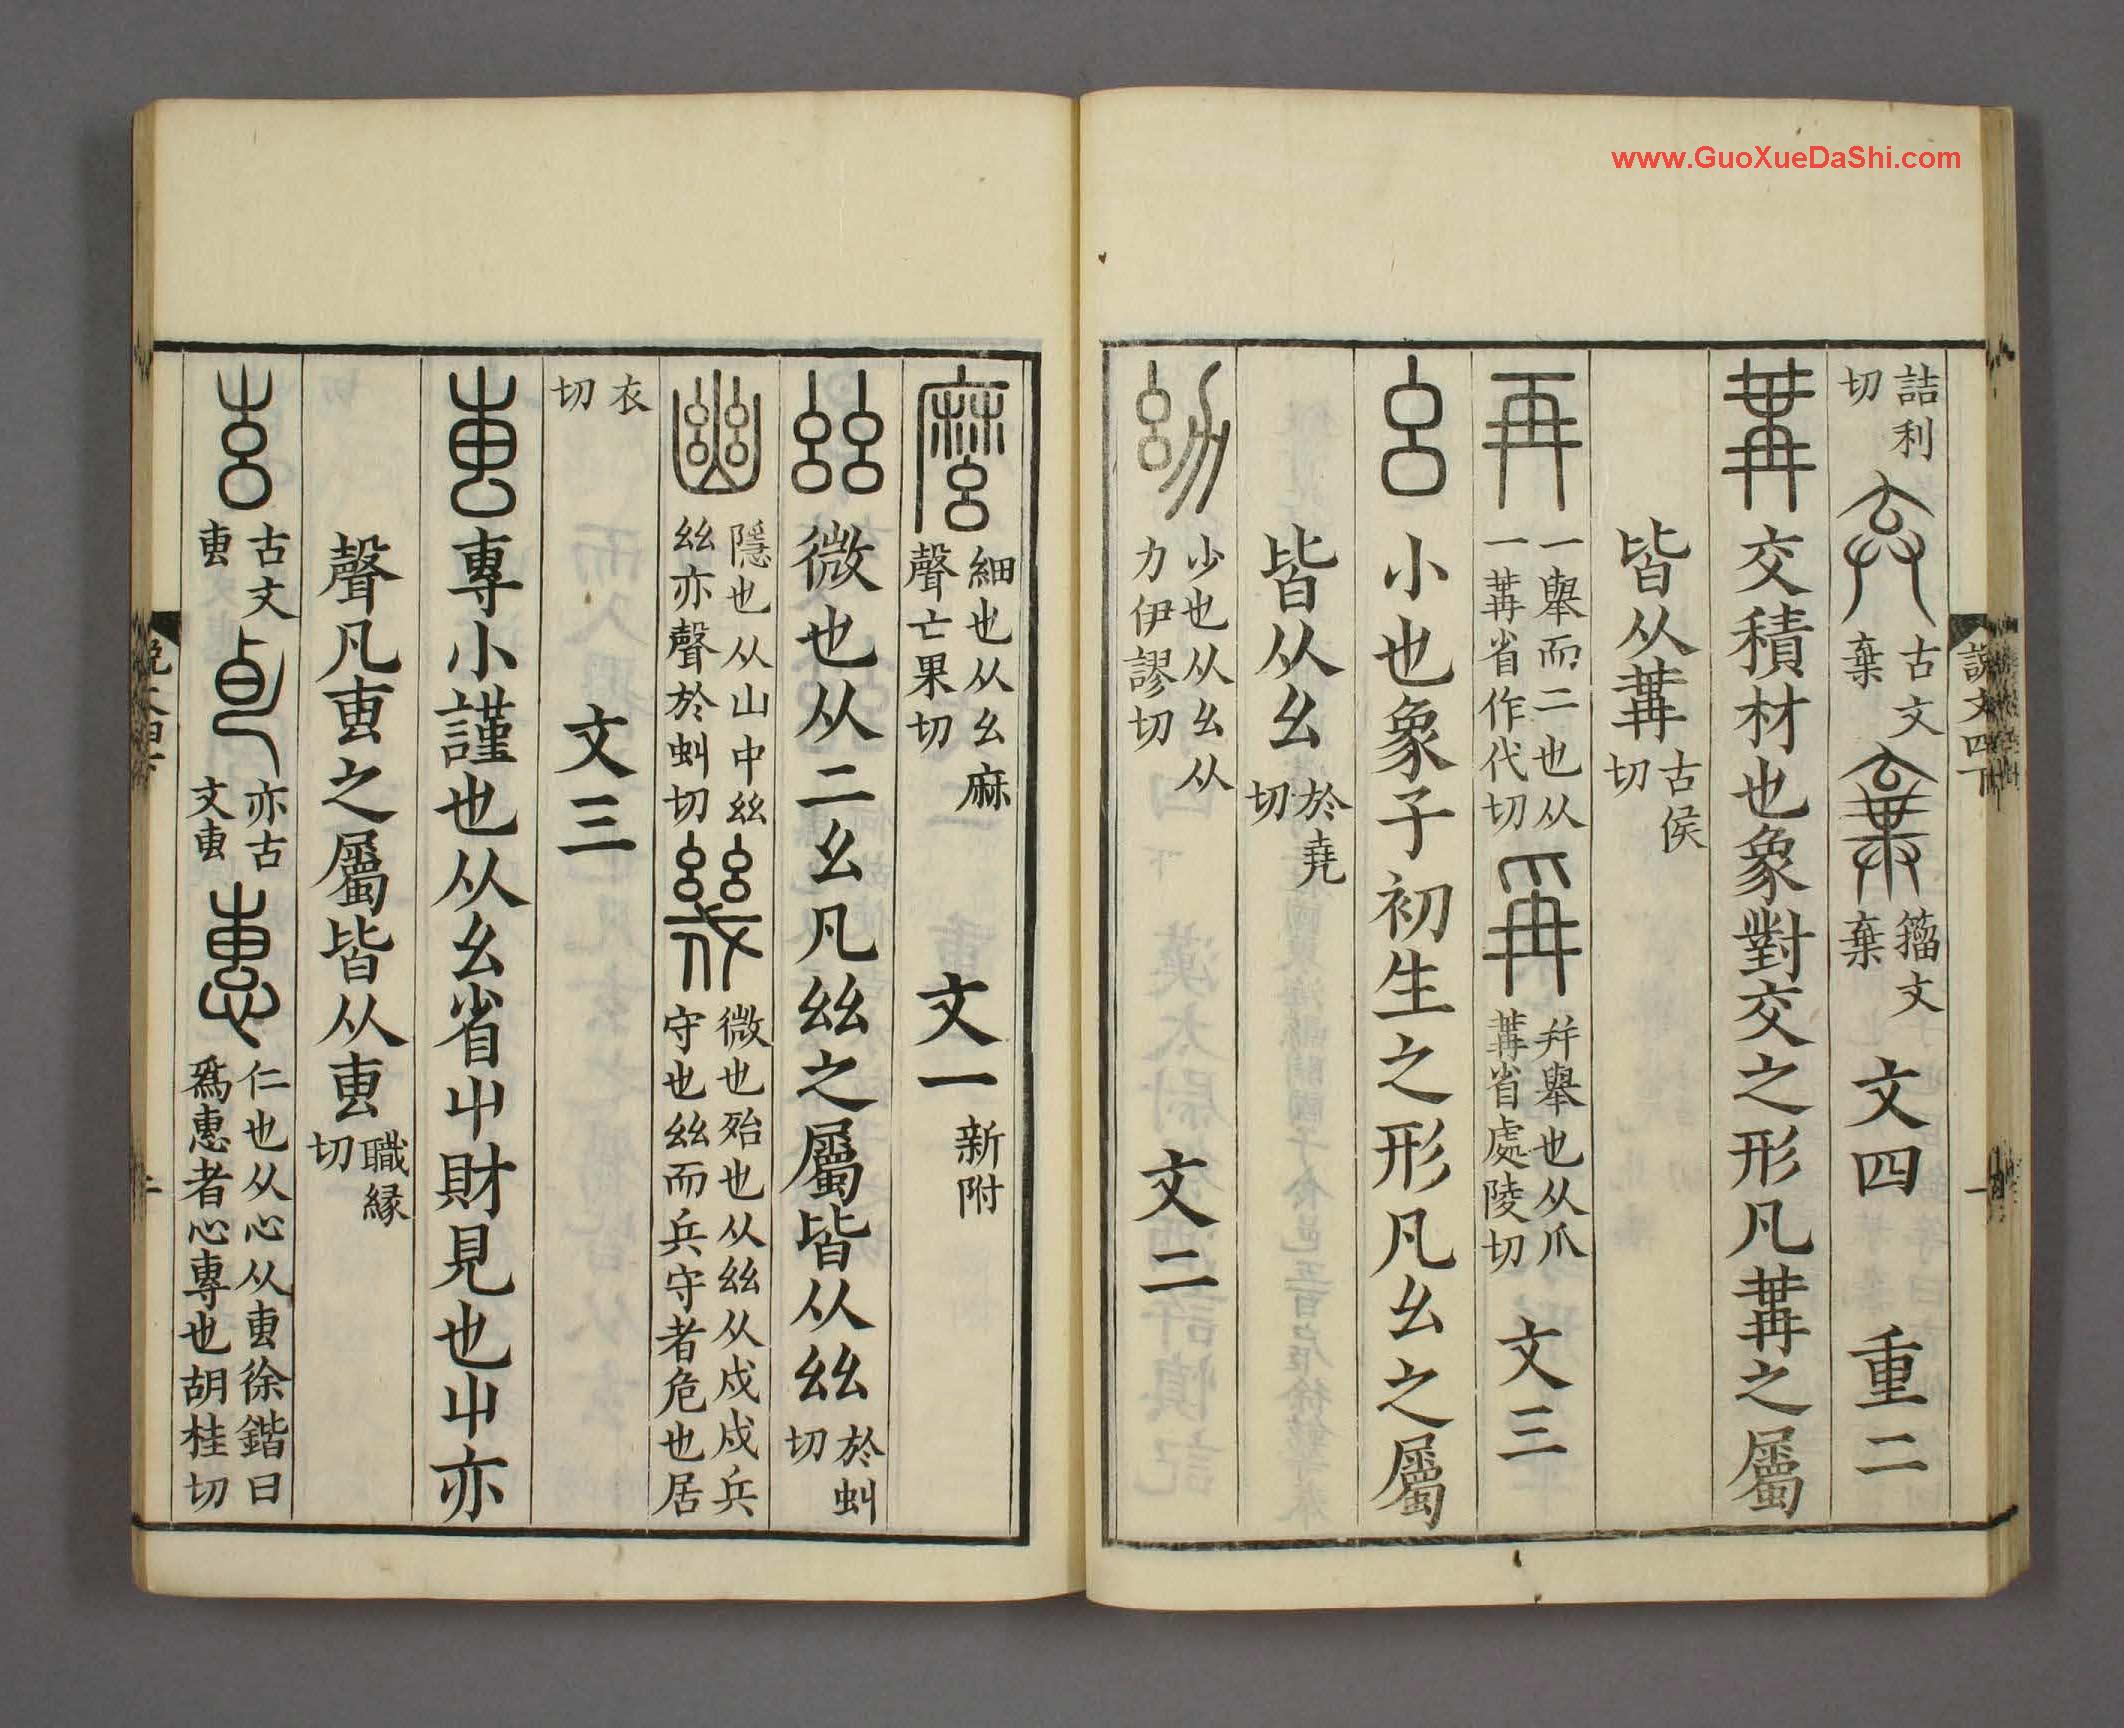 www.GuoXueDaShi.com
說文四下
一
詰利切 弃 古文棄 棄 籀文棄 文四 重二
冓 交積材也象對交之形凡冓之屬
皆从冓 古侯切
再 一舉而二也从一冓省作代切 爯 并舉也从爪冓省處陵切 文三
幺 小也象子初生之形凡幺之屬
皆从幺 於堯切
幼 少也从幺从力伊謬切 文二
麼 細也从幺麻聲亡果切 文一 新附
𢆶 微也从二幺凡𢆶之屬皆从𢆶 於虯切
幽 隱也从山中𢆶𢆶亦聲於虯切 幾 微也殆也从𢆶从戍戍兵守也𢆶而兵守者危也居
衣切 文三
叀 專小謹也从幺省屮財見也屮亦
聲凡叀之屬皆从叀 職緣切
古文叀 亦古文叀 惠 仁也从心从叀徐鍇曰爲惠者心專也胡桂切
說文四下
二